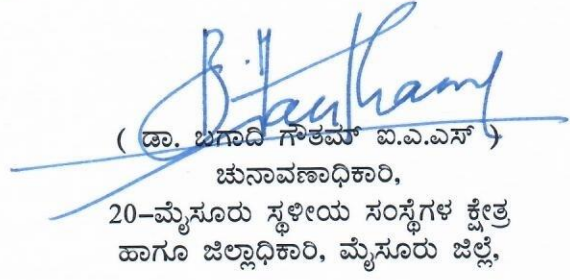 ( ಡಾ. ಬಗಾದಿ ಗೌತಮ್ ಐ.ಎ.ಎಸ್ )
ಚುನಾವಣಾಧಿಕಾರಿ,
20–ಮೈಸೂರು ಸ್ಥಳೀಯ ಸಂಸ್ಥೆಗಳ ಕ್ಷೇತ್ರ
ಹಾಗೂ ಜಿಲ್ಲಾಧಿಕಾರಿ, ಮೈಸೂರು ಜಿಲ್ಲೆ,